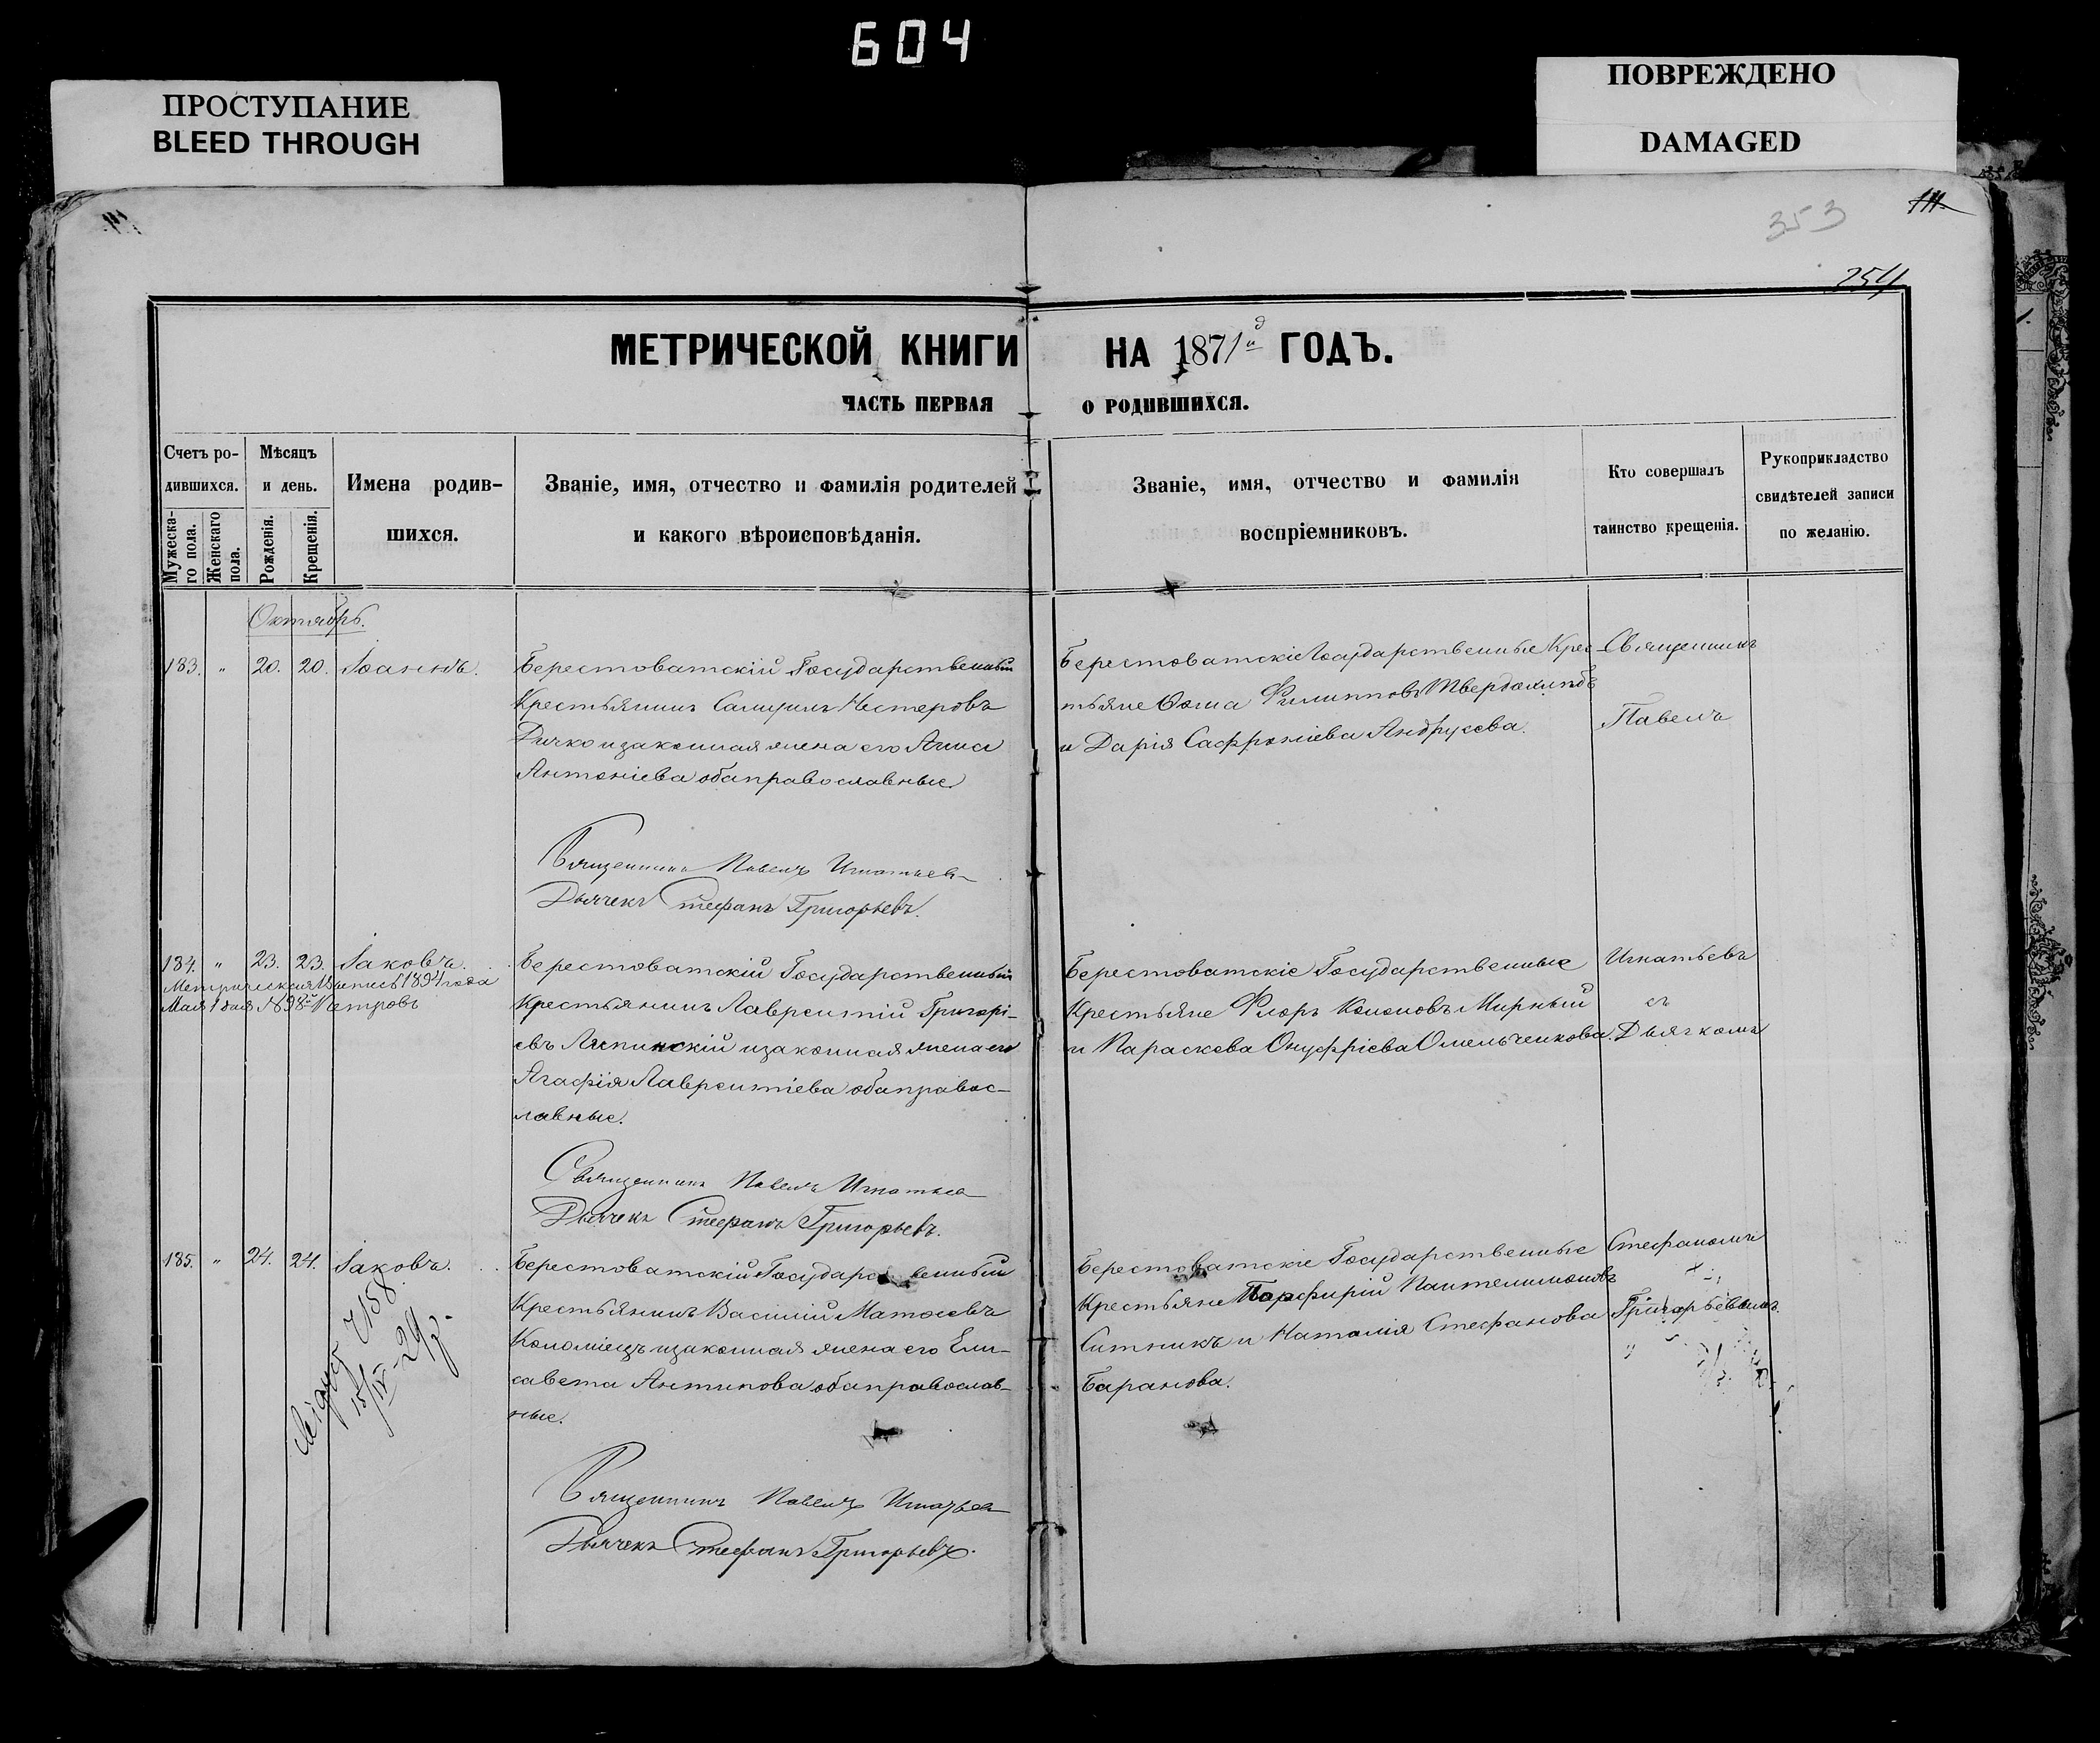 604
ПРОСТУПАНИЕ
BLEED THROUGH
ПОВРЕЖДЕНО
DAMAGED
111.
353
254
МЕТРИЧЕСКОЙ КНИГИ НА 1871й ГОДЪ.
ЧАСТЬ ПЕРВАЯ О РОДИВШИХСЯ.
Счетъ ро-
дившихся.
Мужеска-
го пола.
Женскаго
пола.
Мѣсяцъ
и день.
Рожденія.
Крещенія.
Имена родив-
шихся.
Званіе, имя, отчество и фамилія родителей
и какого вѣроисповѣданія.
Званіе, имя, отчество и фамилія
воспріемниковъ.
Кто совершалъ
таинство крещенія.
Рукоприкладство
свидѣтелей записи
по желанію.
Октябрь.
183. " 20. 20. Іоаннъ.
Берестоватскій Государственный
Крестьянинъ Самуилъ Нестеровъ
Дичко и законная жена его Анна
Антоніева оба православные.
Берестоватскіе Государственные Крес-
тьяне Ѳома Филипповъ Твердохлѣбъ
и Дарія Сафроніева Андрусева.
Священникъ
Павелъ
Священникъ Павелъ Игнатьев
Дьячекъ Стефанъ Григорьевъ.
184. " 23. 23. Іаковъ.
Метрическая Выпись 1894 года
Мая 1 дня № 98й Петровъ
Берестоватскій Государственный
Крестьянинъ Лаврентій Григорі-
евъ Липинскій и законная жена его
Агафія Лаврентіева оба правос-
лавные.
Берестоватскіе Государственные
Крестьяне Флоръ Кононовъ Мирный
и Параскева Онуфріева Омельченкова.
Игнатьевъ
съ
Дьячкомъ
Священникъ Павелъ Игнатьев
Дьячекъ Стефанъ Григорьевъ.
185. " 24. 24. Іаковъ.
158
15/IV-29р.
Берестоватскій Государственный
Крестьянинъ Василій Матѳеевъ
Коломіецъ и законная жена его Ели-
савета Антипова оба православ-
ные.
Берестоватскіе Государственные
Крестьяне Порфирій Пантелимоновъ
Ситникъ и Наталія Стефанова
Баранова.
Стефаномъ
Григорьевымъ.
Священникъ Павелъ Игнатьев
Дьячекъ Стефанъ Григорьевъ.